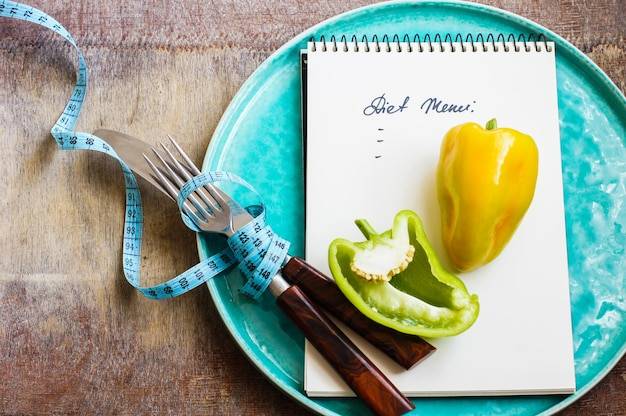 Diet Menu:
-
-
-